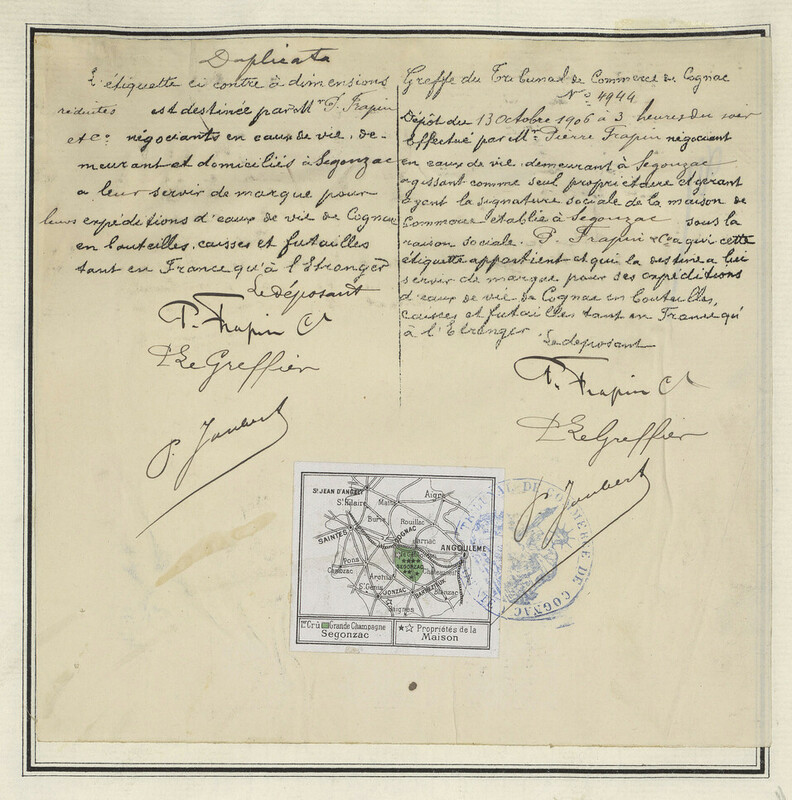 Duplicata
L'étiquette ci contre à dimensions
réduites est destinée par Mr P. Frapin
et Co négociants en eaux de vie, de-
meurant et domiciliés à Segonzac
a leur servir de marque pour
leurs expéditions d'eaux de vie de Cognac
en bouteilles, caisses et futailles
tant en France qu'à l'Etranger
Le déposant
P. Frapin Co
P. Le Greffier
P. Joubert
Greffe du Tribunal de Commerce de Cognac
No 4944
Dépôt du 13 Octobre 1906 à 3 heures du soir
Effectué par Mr Pierre Frapin négociant
en eaux de vie, demeurant à Segonzac
agissant comme seul propriétaire et gérant
ayant la signature sociale de la maison de
Commerce établie à Segonzac sous la
raison sociale. P. Frapin & Co a qui cette
étiquette appartient et qui la destine a lui
servir de marque pour ses expéditions
d'eaux de vie de Cognac en bouteilles,
caisses et futailles tant en France qu'
à l'Etranger
Le déposant
P. Frapin Co
P. Le Greffier
P. Joubert
ST JEAN D'ANGELY
Aigre
St Hilaire
Matha
Burie
Rouillac
SAINTES
COGNAC
Jarnac
ANGOULÊME
Pons
SEGONZAC
Archiac
St Genis
JONZAC
BARBEZIEUX
Blanzac
1er Crû Grande Champagne
Segonzac
Propriétés de la
Maison
TRIBUNAL DE COMMERCE DE COGNAC